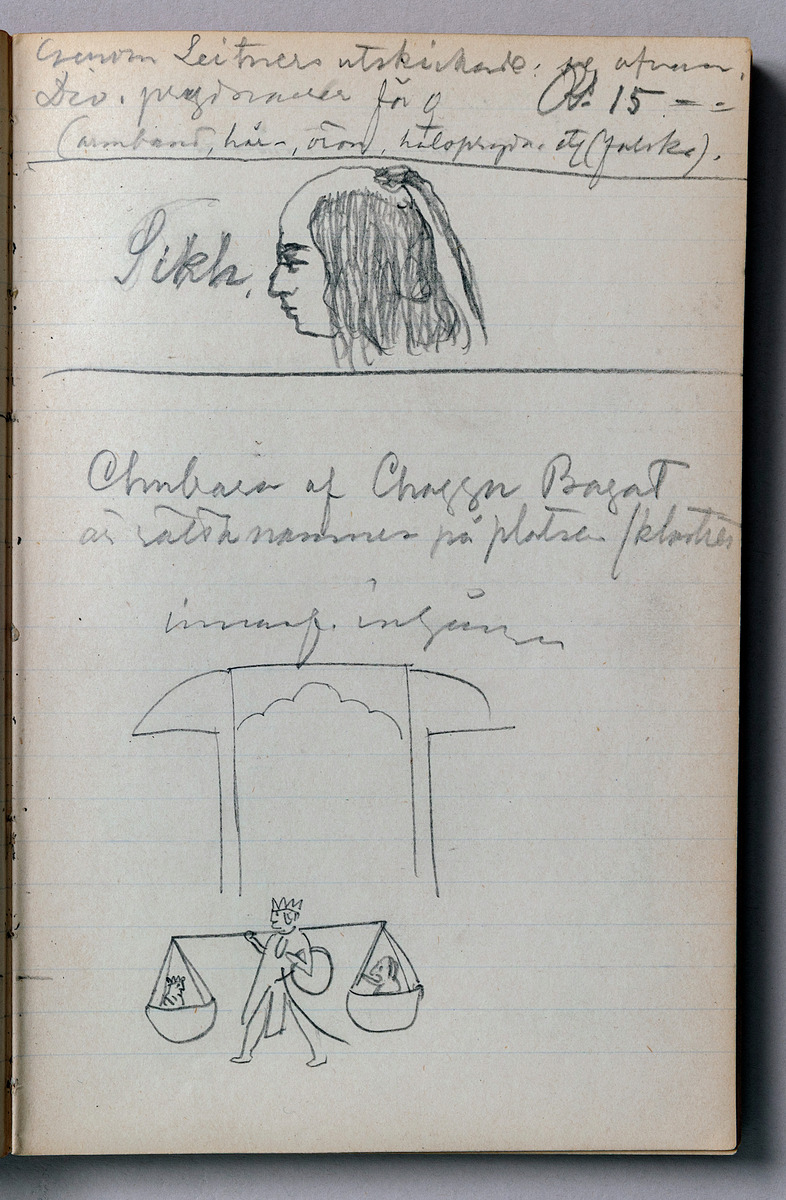 Genom Leitners utskickade:
Div. prydnader för ♀ Rs. 15 - -
(armband, hår-, öron, halsprydn. etc (falska).
Sikh.
Chubara af Chaggu Bagat
är rätta namnet på platsen / klostret
innanf. ingången